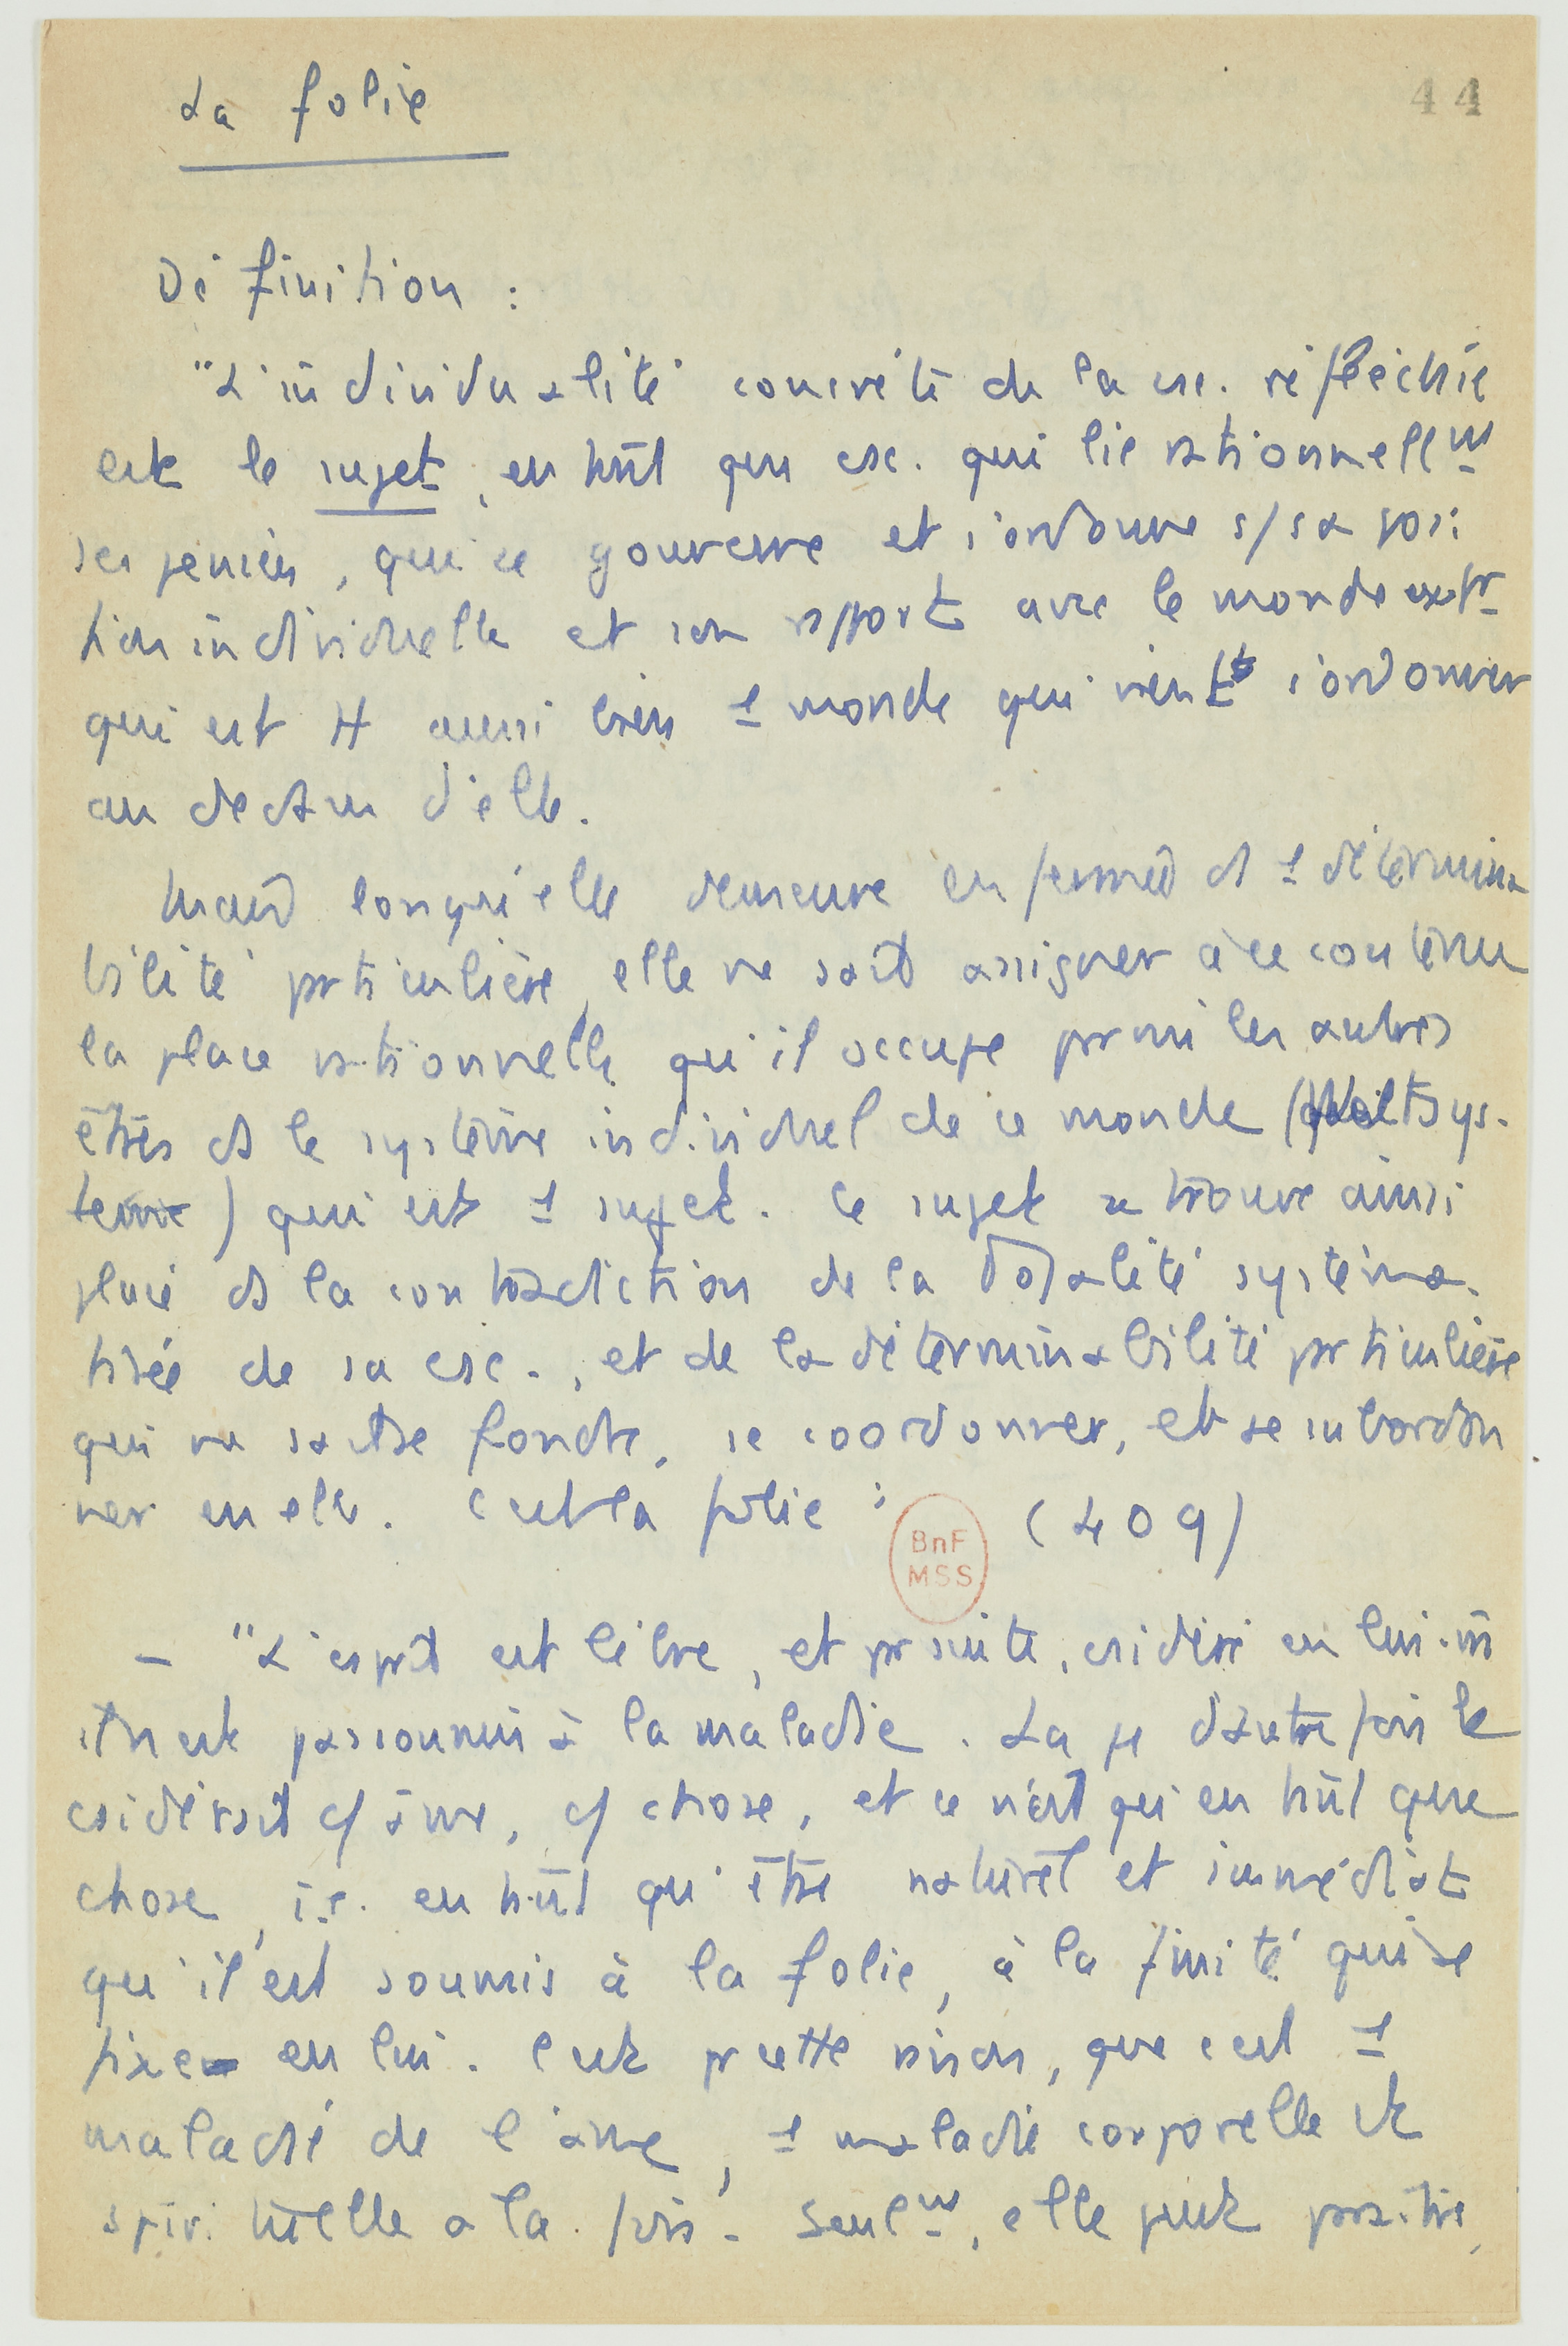 La folie
44
Définition :
"L'individualité concrète de la csc. réfléchie
est le sujet, en tant que csc. qui lie rationnellmt
ses pensées, qui se gouverne et s'ordonne s/ sa posi
tion individuelle et son rapport avec le monde extr
qui est tt aussi bien 1 monde qui vient s'ordonner
au dedans d'elle.
Quand lorsqu'elle demeure enfermée ds 1 détermina
bilité particulière, elle ne sait assigner à ce contenu
la place rationnelle qu'il occupe parmi les autres
êtres ds le système individuel de ce monde (Weltsys-
teme) qui est 1 sujet. Le sujet se trouve ainsi
placé ds la contradiction de la totalité systéma-
tisée de sa csc., et de la déterminabilité particulière
qui ne sait se fondre, se coordonner, et se subordon
ner en elle. C'est la folie" (409)
BnF
MSS
- "L'esprit est libre, et par suite, csidéré en lui-m
il n'est pas soumis à la maladie. La φ d'autrefois le
csidérait c/ âme, c/ chose, et ce n'est qu'en tant que
chose, i.e. en tant qu'être naturel et immédiat
qu'il est soumis à la folie, à la finité qui se
fixe en lui. C'est pr cette raison, que c'est 1
maladie de l'âme, 1 maladie corporelle et
spirituelle à la fois. Seulmt, elle peut paraître,